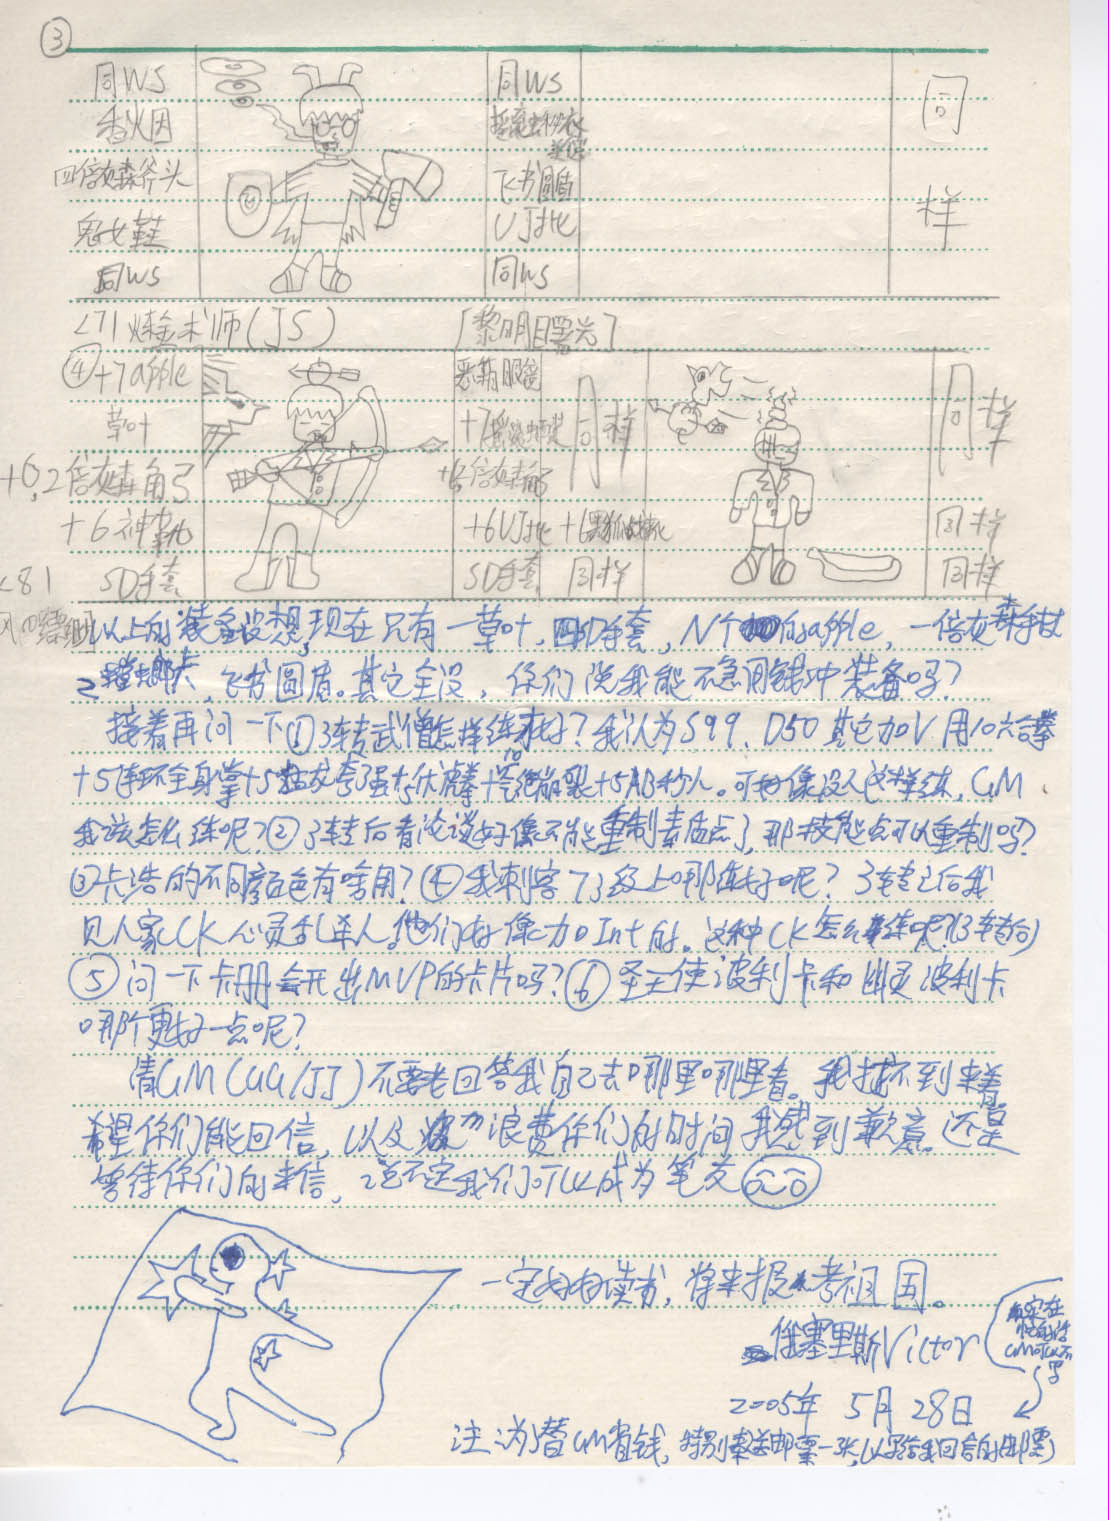 ③
同WS 同WS 同
香火因
四倍女森斧头 飞书圆盾
鬼女鞋 样
同WS 同WS
<71炼金术师(JS) [黎明曙光]
④+7apple 恶萌眼镜 同样 同样
草叶 +7
+6,2倍女森角弓
+6神靴 +6 +6黑狐 同样
<81 SD手套 SD手套 同样 同样
以上的装备设想,现在只有一草叶,四SD手套,N个的apple,一倍女森手杖
2螳螂卡,飞书圆盾。其它全没,你们说我能不急用钱冲装备吗?
接着再问一下①3转武僧怎样练来好?我认为S99、D50其它加V用10六合拳
+5连环全身掌+5 +5伏虎拳+10 +5 秒人。可好像没人这样练,GM
我该怎么练呢?②3转后看论谈好像不能重制素质点了,那技能点可以重制吗?
③卡浩的不同颜色有啥用?④我刺客73级上哪练好呢?3转之后我
见人家CK心灵乱杀人。他们好像加Int的。这种CK怎么练呢?(3转后)
⑤问一下卡册会开出MVP的卡片吗?⑥圣天使波利卡和幽灵波利卡
哪个更好一点呢?
请GM(GG/JJ)不要老回答我自己去哪里哪里看。我找不到来着
希望你们能回信,以及为浪费你们的时间我感到歉意。还是
等待你们的来信,说不定我们可以成为笔友
一定好好读书,将来报考祖国。
俄塞里斯Victor
实在
忙的话
GM可以不
写
2005年 5月 28日
注:为了替GM省钱,特别奉送邮票一张,以写给我回信的邮票)